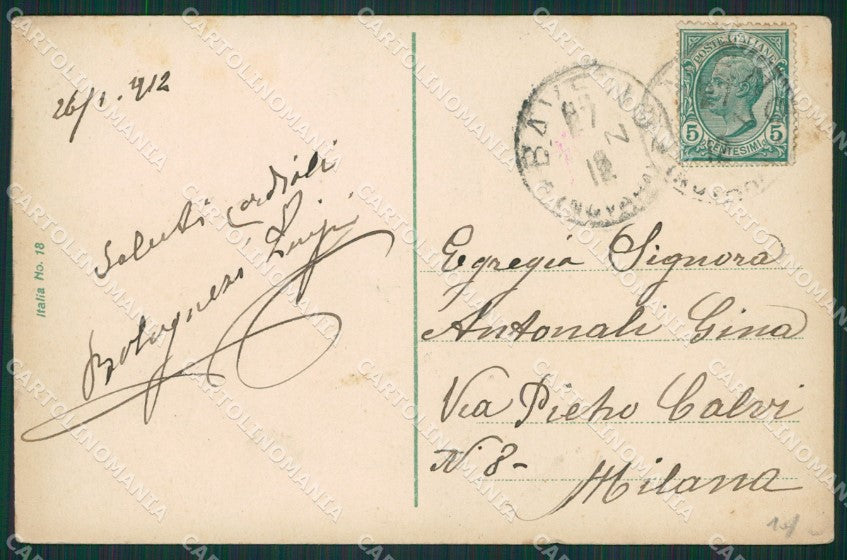 26/1.912
Saluti cordiali
Bolognesi Luigi
Italia No. 18
POSTE ITALIANE
5 5
CENTESIMI
BAVENO
27
12
(NOVARA)
Egregia Signora
Antonali Gina
Via Pietro Calvi
N. 8-
Milano
CARTOLINOMANIA